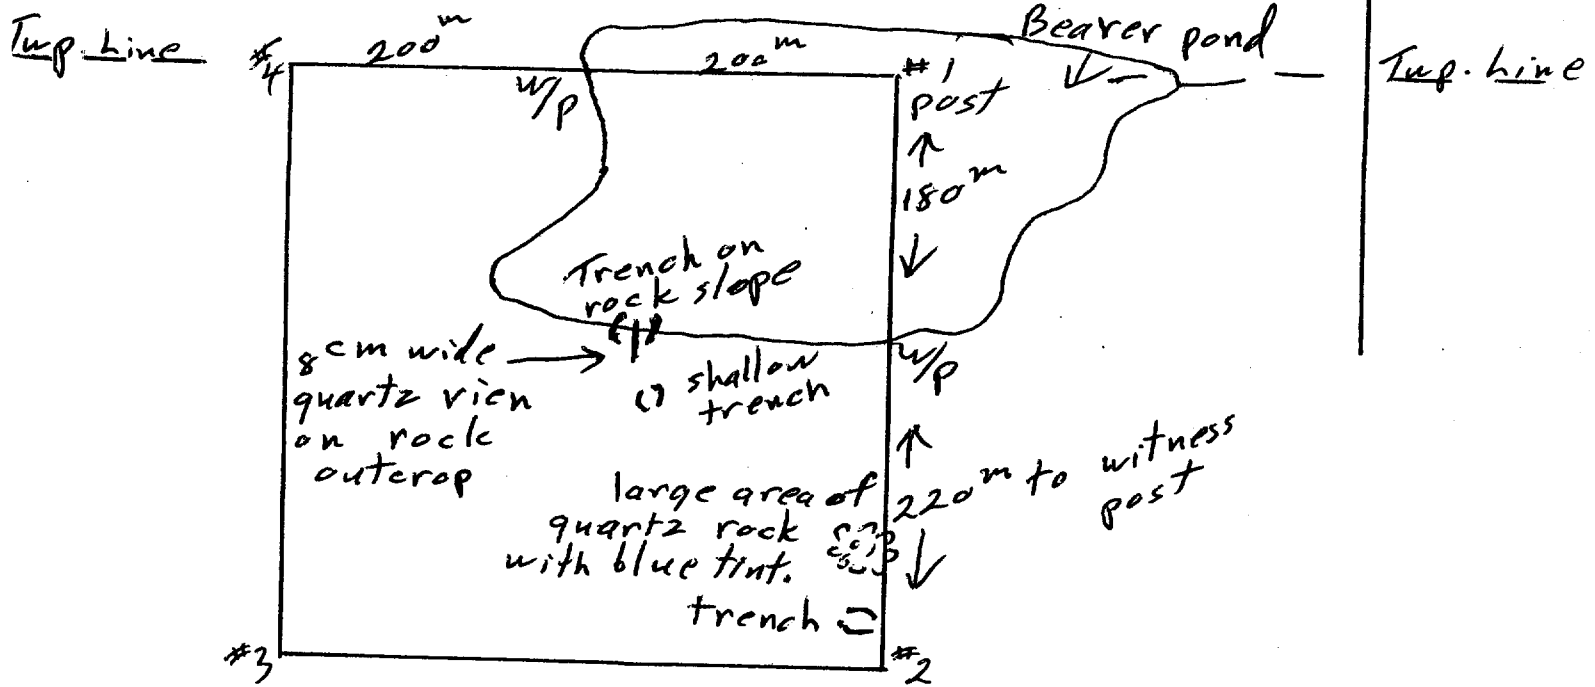 Twp. Line
#4
200m
W/P
200m
#1
post
Beaver pond
Twp. Line
180m
Trench on
rock slope
8cm wide
quartz vien
on rock
outcrop
shallow
trench
W/P
220m to witness
post
large area of
quartz rock
with blue tint.
trench
#3
#2